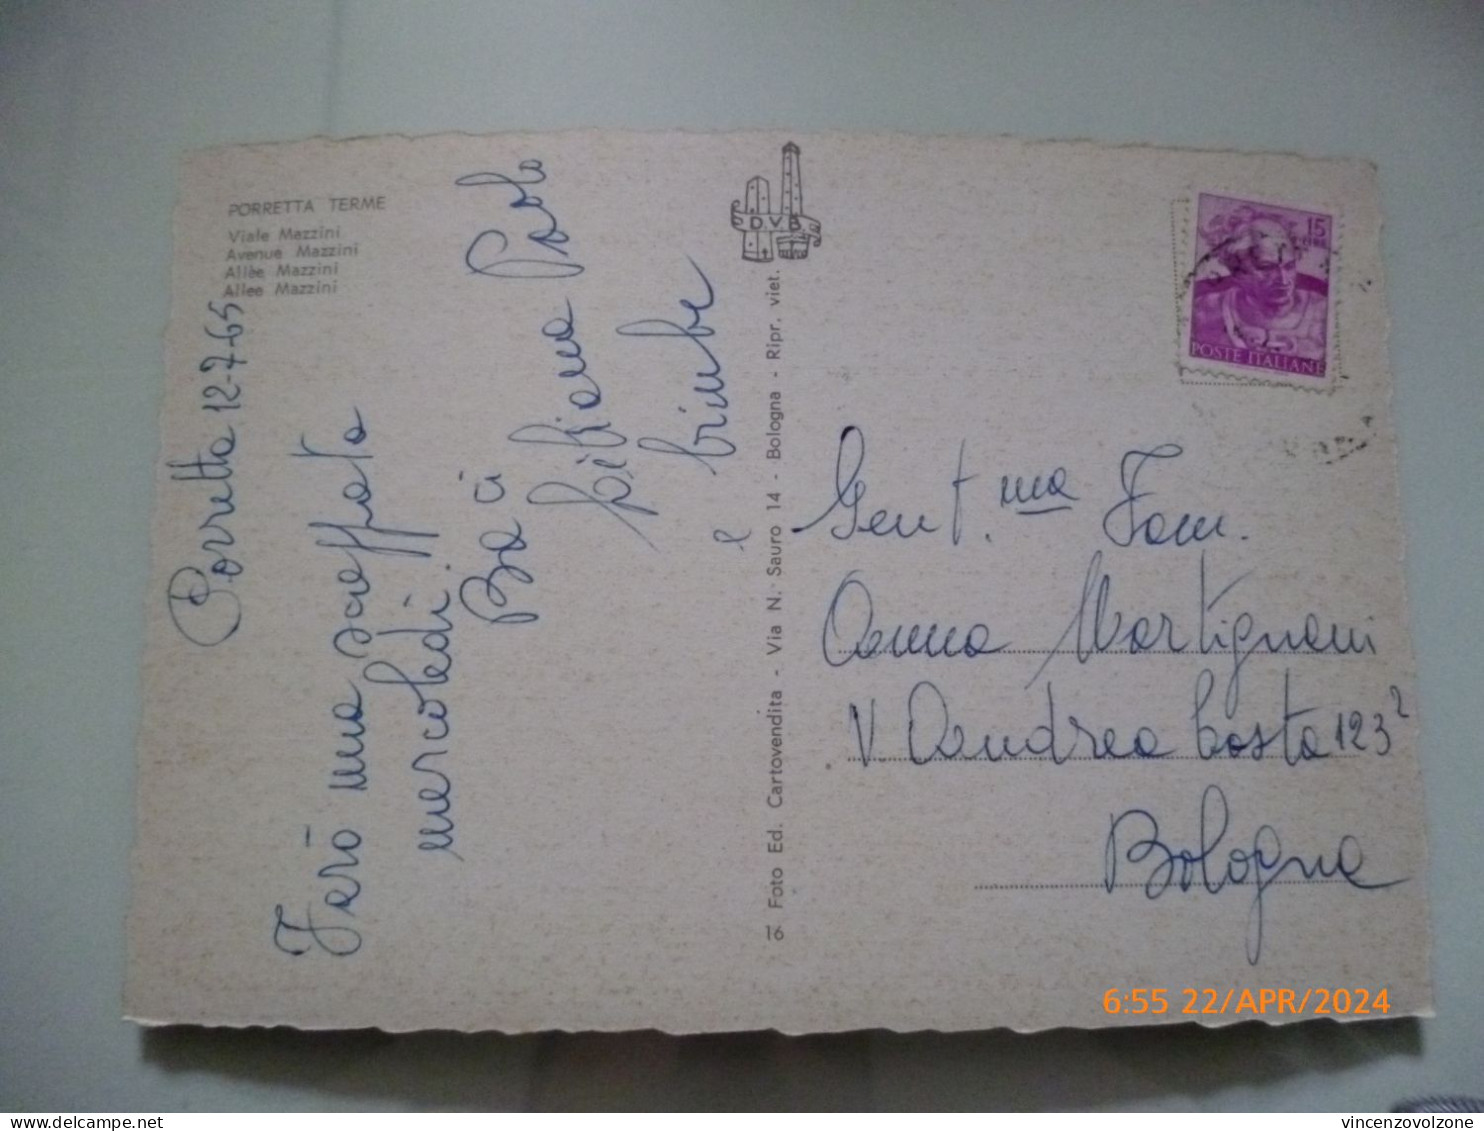 PORRETTA TERME
Viale Mazzini
Avenue Mazzini
Allèe Mazzini
Allee Mazzini
Porretta 12-7-65
Farò una scappata
mercoledì.
Baci
Paolo
e bimbe
D.V.B.
16 Foto Ed. Cartovendita - Via N. Sauro 14 - Bologna - Ripr. viet.
15
LIRE
POSTE ITALIANE
Gent.ma Fam.
Anna Martignani
V. Andrea Costa 123²
Bologna
6:55 22/APR/2024
vincenzovolzone